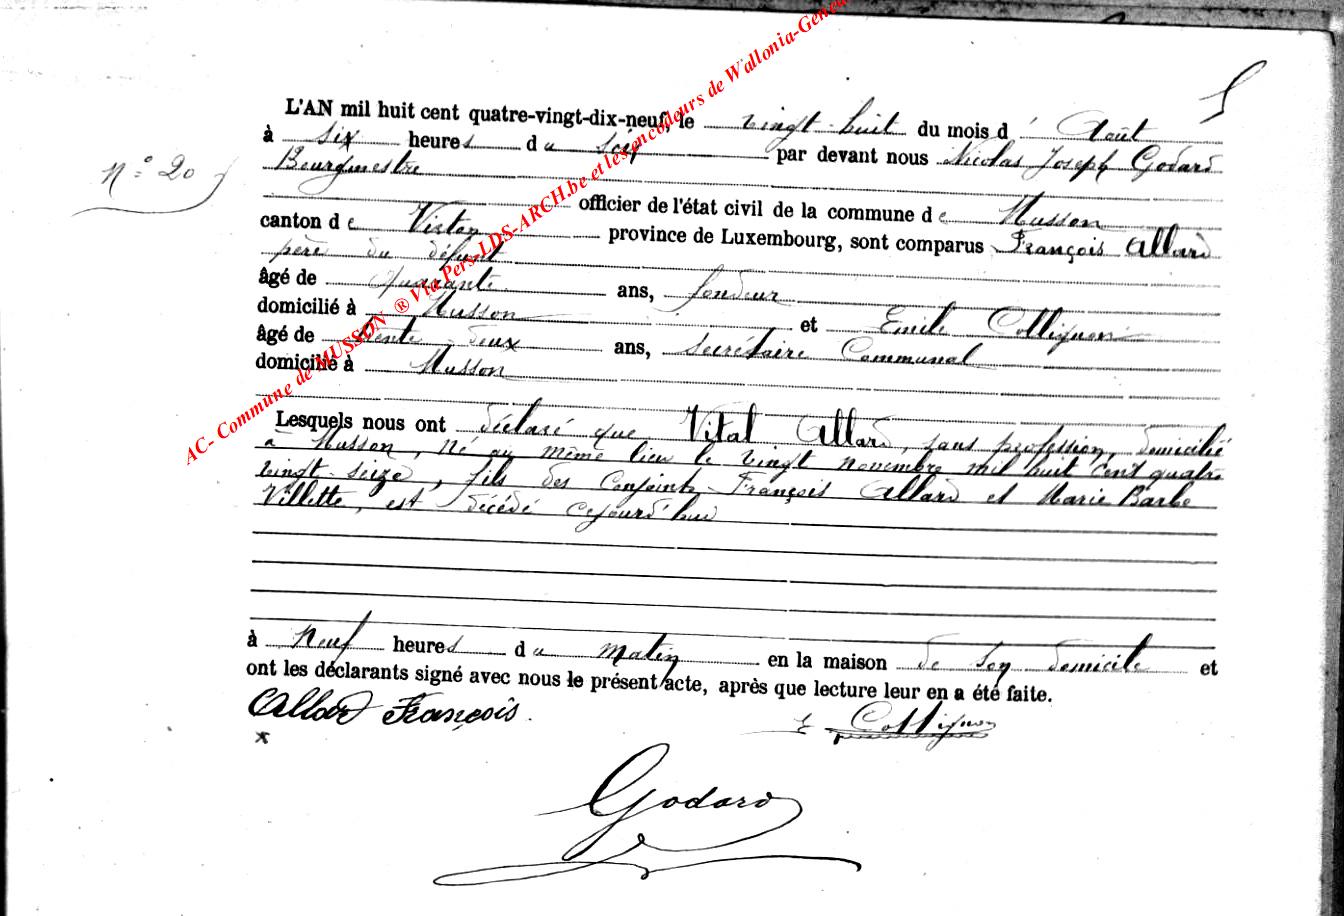 L'AN mil huit cent quatre-vingt-dix-neuf, le vingt-huit du mois d'Août
à six heures du soir par devant nous Nicolas Joseph Godard
N° 20 Bourgmestre
officier de l'état civil de la commune de Musson
canton de Virton province de Luxembourg, sont comparus François Allard
père du défunt
âgé de quarante ans, fondeur
domicilié à Musson et Emile Collignon
âgé de trente deux ans, secrétaire Communal
domicilié à Musson
Lesquels nous ont déclaré que Vital Allard, sans profession, domicilié
à Musson, Né au même lieu le vingt novembre mil huit cent quatre
vingt seize, fils des Conjoints François Allard et Marie Barbe
Villette, est décédé cejourd'hui
à Neuf heures du matin en la maison de son domicile et
ont les déclarants signé avec nous le présent acte, après que lecture leur en a été faite.
Allard François. E Collignon
Godard
AC- Commune de MUSSON ® Via Pers-LDS-ARCH.be et les encodeurs de Wallonia-Genea